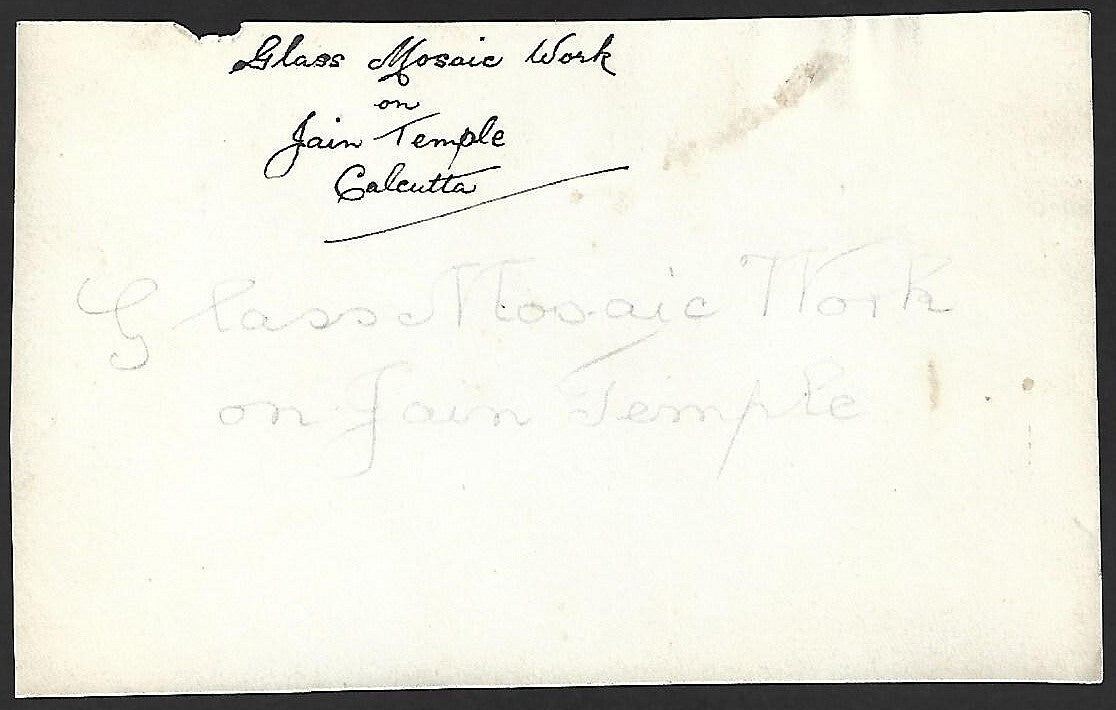 Glass Mosaic Work
on
Jain Temple
Calcutta
Glass Mosaic Work
on Jain Temple